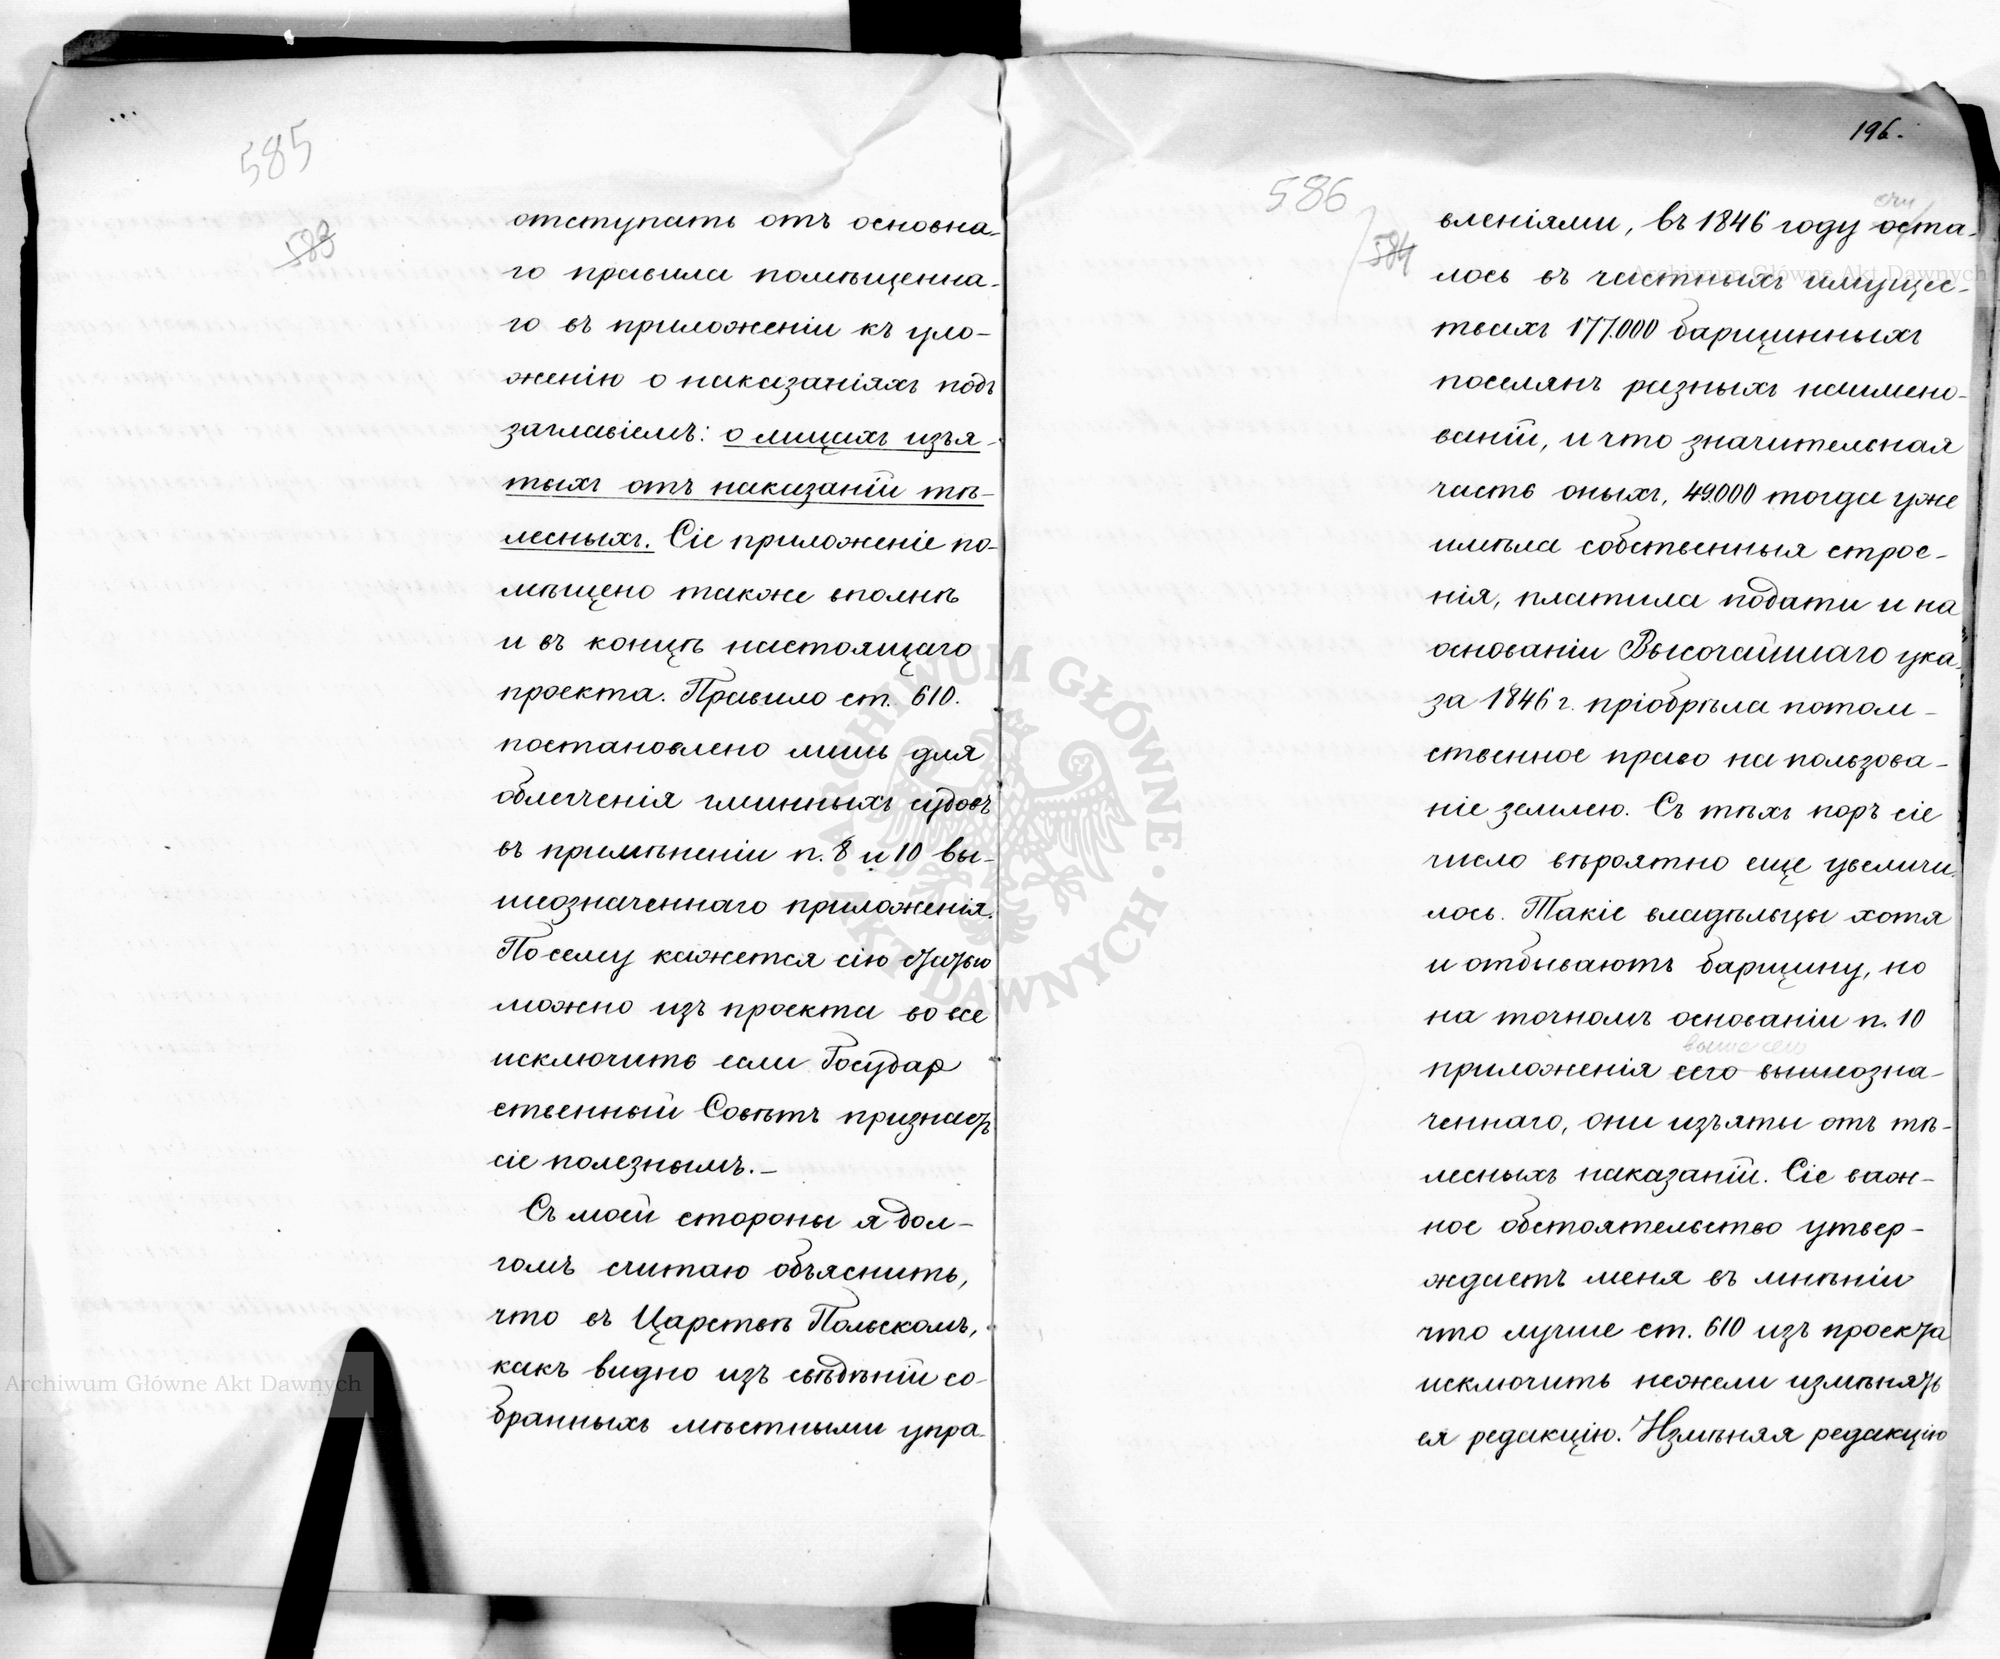 585
583
отступать отъ основна-
го правила помѣщенна-
го въ приложеніи къ уло-
женію о наказаніяхъ подъ
заглавіемъ: о лицахъ изъя-
тыхъ отъ наказаній тѣ-
лесныхъ. Сіе приложеніе по-
мѣщено также вполнѣ
и въ концѣ настоящаго
проекта. Правило ст. 610.
постановлено лишь для
облегченія гминныхъ судовъ
въ примѣненіи п. 8 и 10 вы-
шеозначеннаго приложенія.
По сему кажется сію статью
можно изъ проекта во все
исключить если Государ
ственный Совѣтъ признаетъ
сіе полезнымъ.—
Съ моей стороны я дол-
гомъ считаю объяснить,
что въ Царствѣ Польскомъ,
какъ видно изъ свѣдѣній со-
бранныхъ мѣстными упра-
196.
586
584
вленіями, въ 1846 году оста-
лось въ частныхъ имущес-
твахъ 177.000 барщинныхъ
поселянъ разныхъ наимено-
ваній, и что значительная
часть оныхъ, 49.000 тогда уже
имѣла собственныя строе-
нія, платила подати и на
основаніи Высочайшаго ука-
за 1846 г. пріобрѣла потом-
ственное право на пользова-
ніе землею. Съ тѣхъ поръ сіе
число вѣроятно еще увеличи-
лось. Такіе владѣльцы хотя
и отбываютъ барщину, но
на точномъ основаніи п. 10
приложенія сего вышеозна-
ченнаго, они изъяты отъ тѣ-
лесныхъ наказаній. Сіе важ-
ное обстоятельство утвер-
ждаетъ меня въ мнѣніи
что лучше ст. 610 изъ проекта
исключить нежели измѣнять
ея редакцію. Измѣняя редакцію
Archiwum Główne Akt Dawnych
Archiwum Główne Akt Dawnych
ARCHIWUM GŁÓWNE · AKT DAWNYCH ·